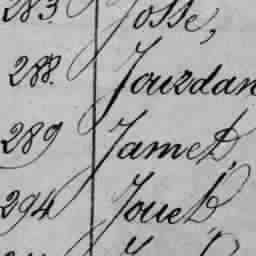 283. Josse,
288. Jourdan
289 Jamet,
294 Jouet,